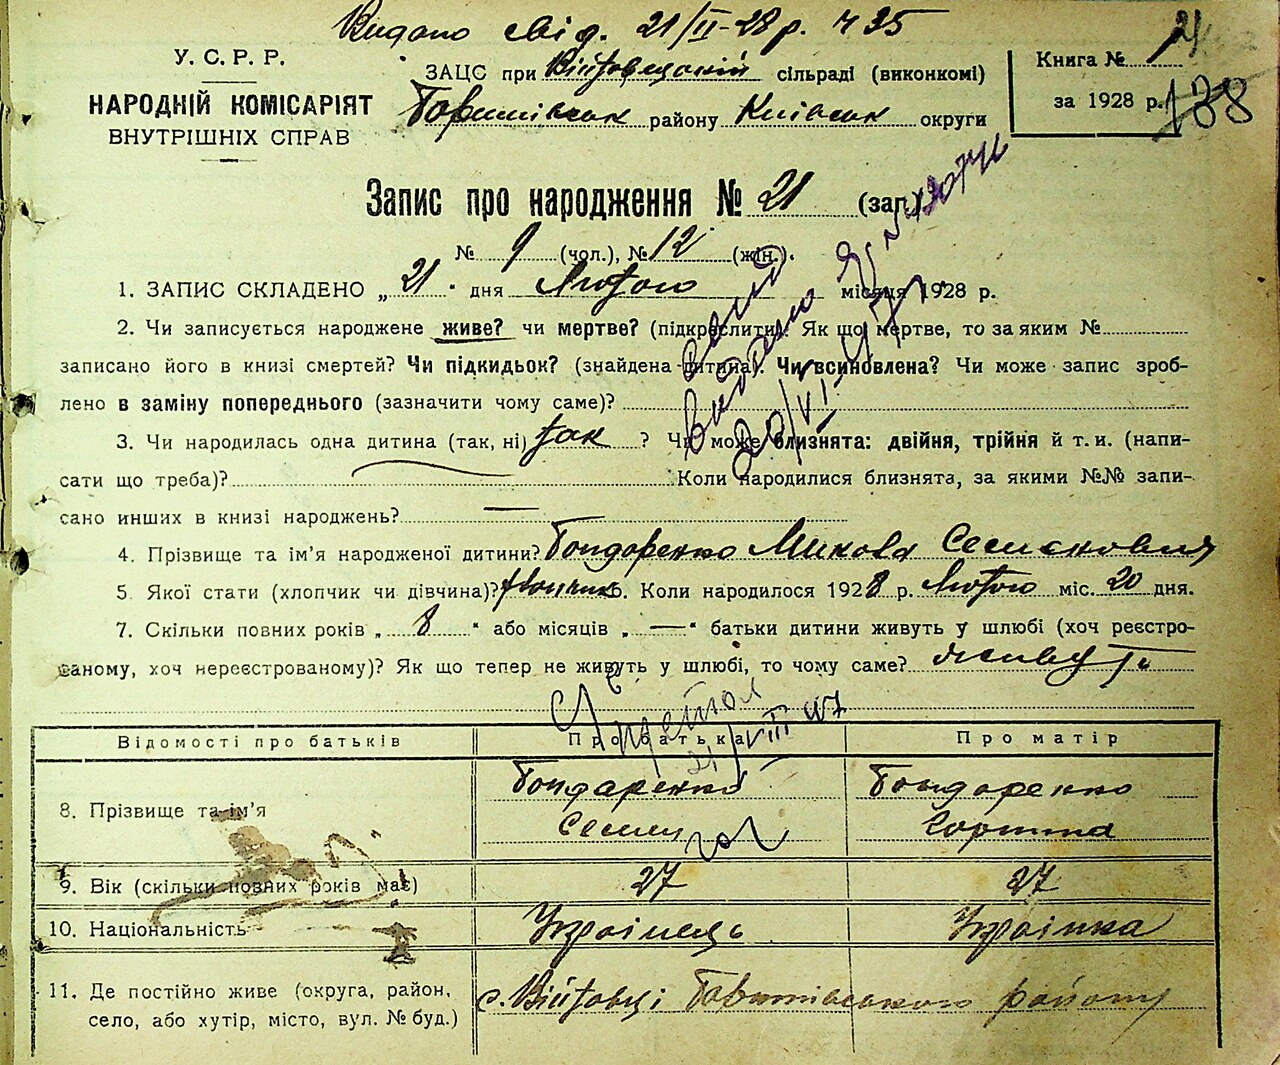 Видано свід. 21/II-28 р. ч 35
У. С. Р. Р.
НАРОДНІЙ КОМІСАРІЯТ
ВНУТРІШНІХ СПРАВ
ЗАЦС при Війтовецькій сільраді (виконкомі)
Баришівськ району Київськ округи
Книга №
за 1928 р.
138
Запис про народження № 21 (заг.)
№ 9 (чол.), № 12 (жін.).
1. ЗАПИС СКЛАДЕНО „ 21 " дня Лютого місяця 1928 р.
2. Чи записується народжене живе? чи мертве? (підкреслити). Як що мертве, то за яким №
записано його в книзі смертей? Чи підкидьок? (знайдена дитина). Чи всиновлена? Чи може запис зроб-
лено в заміну попереднього (зазначити чому саме)?
3. Чи народилась одна дитина (так, ні) так ? Чи може близнята: двійня, трійня й т. и. (напи-
сати що треба)? Коли народилися близнята, за якими №№ запи-
сано инших в книзі народжень? —
4. Прізвище та ім'я народженої дитини? Бондаренко Микола Семенович
5. Якої стати (хлопчик чи дівчина)? хлопчик 6. Коли народилося 1928 р. Лютого міс. 20 дня.
7. Скільки повних років „ 8 " або місяців „ — " батьки дитини живуть у шлюбі (хоч реєстро-
ваному, хоч нереєстрованому)? Як що тепер не живуть у шлюбі, то чому саме? живуть
видано
20/VI-47
21/VIII 47
Відомості про батьків Про батька Про матір
8. Прізвище та ім'я Бондаренко Бондаренко
Семен
9. Вік (скільки повних років має) 27 27
10. Національність Українець Українка
11. Де постійно живе (округа, район, с. Війтовці Баришівського району
село, або хутір, місто, вул. № буд.)